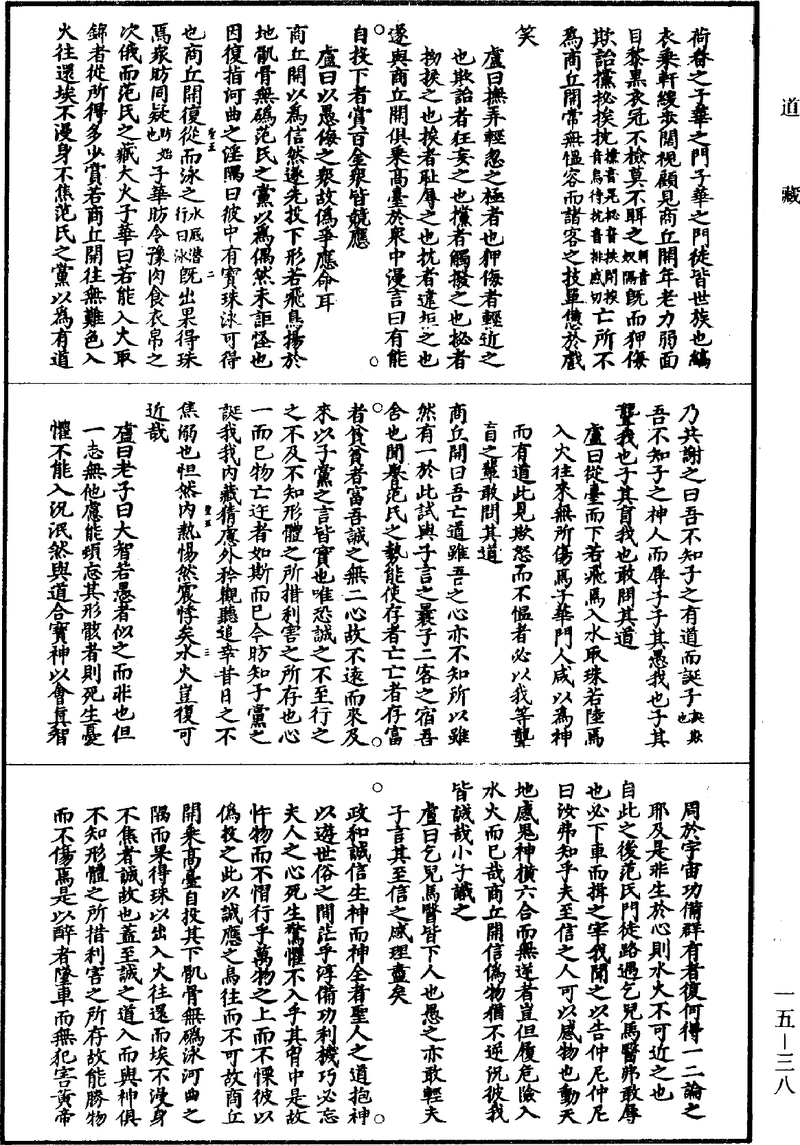 道藏
一五—三八
荷畚之子華之門子華之門徒皆世族也縞
衣乘軒緩步闊視顧見商丘開年老力弱面
目黎黑衣冠不檢莫不眲之眲音奴隔既而狎侮
欺詒攩㧙挨抌攩音晃㧙音扶閉挨音烏待抌音排感切亡所不
為商丘開常無慍容而諸客之技單憊於戲
笑
盧曰撫弄輕忽之極者也狎侮者輕近之
也欺詒者狂妄之也攩者觸撥之也㧙者
拗捩之也挨者恥辱之也抌者違拒之也
遂與商丘開俱乘高臺於衆中漫言曰有能
自投下者賞百金衆皆競應
盧曰以愚侮之衆故偽爭應命耳
商丘開以為信然遂先投下形若飛鳥揚於
地骪骨無䃣范氏之黨以為偶然未詎怪也
因復指河曲之淫隅曰彼中有寶珠泳可得
也商丘開復從而泳之水底潛行曰泳既出果得珠
焉衆昉同疑昉始也子華昉令豫肉食衣帛之
次俄而范氏之藏大火子華曰若能入火取
錦者從所得多少賞若商丘開往無難色入
火往還埃不漫身不焦范氏之黨以為有道
乃共謝之曰吾不知子之有道而誕子誕欺也
吾不知子之神人而辱子子其愚我也子其
聾我也子其盲我也敢問其道
盧曰從臺而下若飛焉入水取珠若陸焉
入火往來無所傷焉子華門人咸以為神
而有道此見欺怒而不慍者必以我等聾
盲之輩敢問其道
商丘開曰吾亡道雖吾之心亦不知所以雖
然有一於此試與子言之曩子二客之宿吾
舍也聞譽范氏之勢能使存者亡亡者存富
者貧貧者富吾誠之無二心故不遠而來及
來以子黨之言皆實也唯恐誠之不至行之
之不及不知形體之所措利害之所存也心
一而已物亡迕者如斯而已今昉知子黨之
誕我我內藏猜慮外矜觀聽追幸昔日之不
焦溺也怛然內熱惕然震悸矣水火豈復可
近哉
盧曰老子曰大智若愚者似之而非也但
一志無他慮能頓忘其形骸者則死生憂
懼不能入況泯然與道合寶神以會真智
周於宇宙功備群有者復何得一二論之
耶及是非生於心則水火不可近之也
自此之後范氏門徒路遇乞兒馬醫弗敢辱
也必下車而揖之宰我聞之以告仲尼仲尼
曰汝弗知乎夫至信之人可以感物也動天
地感鬼神橫六合而無逆者豈但履危險入
水火而已哉商丘開信偽物猶不逆況彼我
皆誠哉小子識之
盧曰乞兒馬醫皆下人也愚之亦敢輕夫
子言其至信之感理盡矣
政和誠信生神而神全者聖人之道抱神
以遊世俗之間茫乎淳備功利機巧必忘
夫人之心死生驚懼不入乎其胷中是故
忤物而不慴行乎萬物之上而不慄彼以
偽投之此以誠應之烏往而不可故商丘
開乘高臺自投其下骪骨無䃣泳河曲之
隅而果得珠以出入火往還而埃不漫身
不焦者誠故也蓋至誠之道入而與神俱
不知形體之所措利害之所存故能勝物
而不傷焉是以醉者墜車而無犯害黃帝